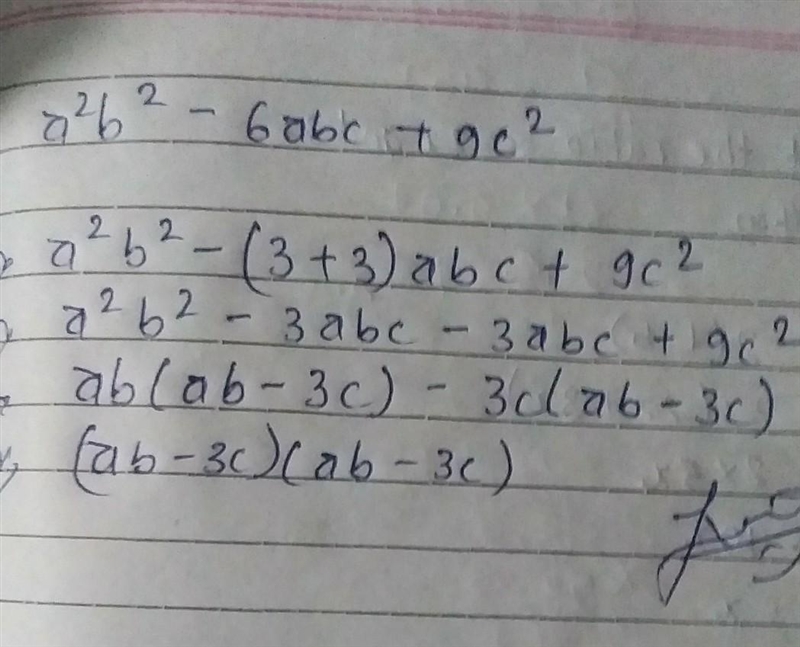 a²b² - 6abc + 9c²
a²b² - (3+3)abc + 9c²
a²b² - 3abc - 3abc + 9c²
ab(ab - 3c) - 3c(ab - 3c)
(ab - 3c)(ab - 3c)